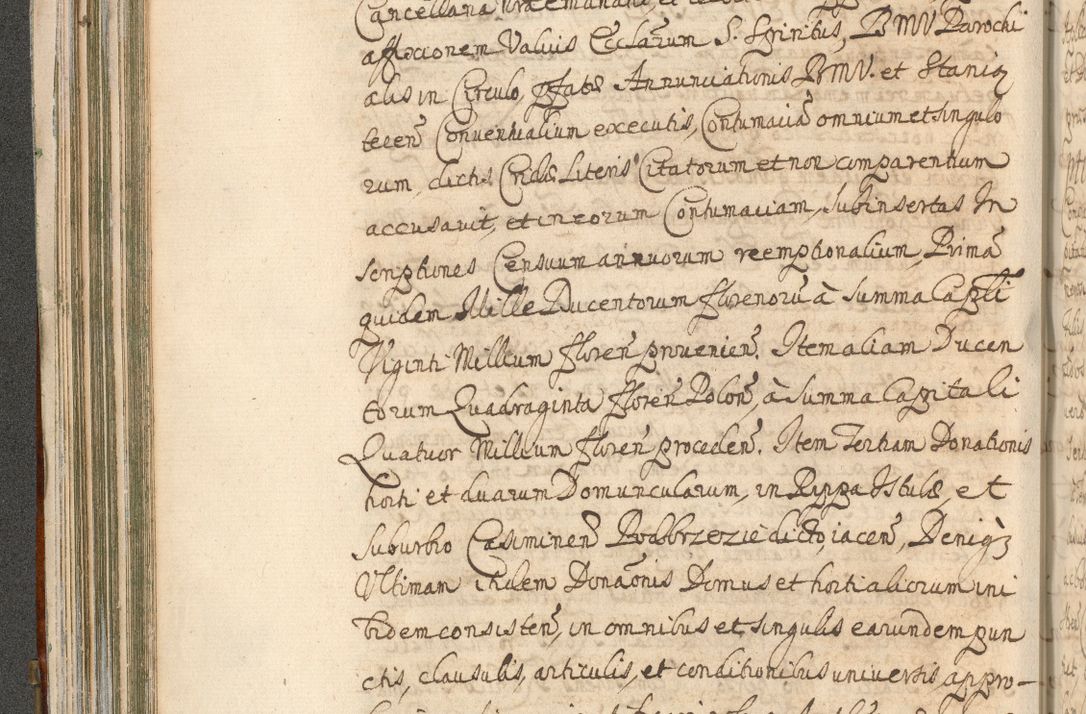 affixionem Valvis Ecclarum S. Spiritus, BMV Parochi
alis in Circulo, pfatæ Annunciationis BMV. et Stanią
tecen̄ Conventualium executis, Contumaciā omnium et singulo
rum, dictis Cridæ Literis Citatorum et non comparentium
accusavit, et in eorum Contumaciam, Subinsertas In
scriptiones Censuum annuorum reemptionalium, Primā
quidem Mille Ducentorum florenorū à Summa Capitli
Viginti Millium floren̄ provenien̄. Item aliam Ducen
torum Quadraginta floren̄ Polon̄, à Summa Capitali
Quatuor Millium floren̄ proceden̄. Item Tertiam Donationis
horti et duarum Domuncularum, in Rippa Istulæ, et
Suburbio Casiminen̄ Podbrzezie dicto, iacen̄, Deniqꝫ
Ultimam itidem Donāonis Domus et horti aliorum ini
bidem consisten̄, in omnibus et singulis earundem pun
ctis, clausulis, articulis, et conditionibus universis, appro-